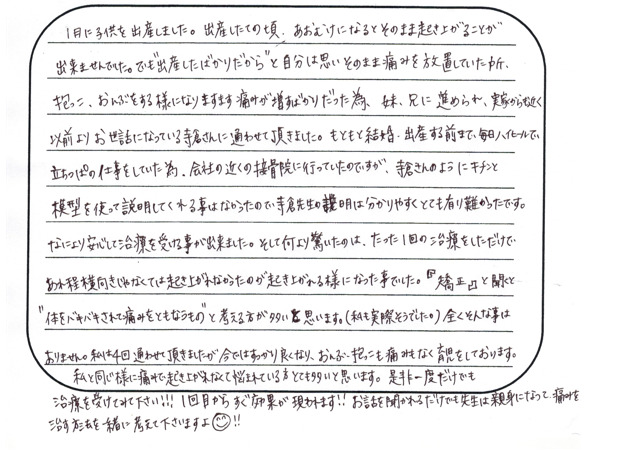 1月に子供を出産しました。出産したての頃、あおむけになるとそのまま起き上がることが
出来ませんでした。でも"出産したばかりだから"と自分は思いそのまま痛みを放置していた所、
抱っこ、おんぶをする様になりますます痛みが増すばかりだった為、妹、兄に進められ、実家からも近く
以前よりお世話になっている寺倉さんに通わせて頂きました。もともと結婚・出産する前まで、毎日ハイヒールでい
立ちっぱの仕事をしていた為、会社の近くの接骨院に行っていたのですが、寺倉さんのようにキチンと
模型を使って説明してくれる事はなかったので寺倉先生の説明は分かりやすくとても有り難かったです。
なにより安心して治療を受ける事が出来ました。そして何より驚いたのは、たった1回の治療をしただけで
あれ程横向きじゃなくては起き上がれなかったのが起き上がれる様になった事でした。『矯正』と聞くと
"体をバキバキされて痛みをともなうもの"と考える方が多いと思います。(私も実際そうでした。)全くそんな事は
ありません。私は4回通わせて頂きましたが今ではすっかり良くなり、おんぶ・抱っこも痛みもなく育児をしております。
私と同じ様に痛みで起き上がれなくて悩まれている方とても多いと思います。是非一度だけでも
治療を受けてみて下さい!!! 1回目からすぐ効果が現われます!! お話を聞かれるだけでも先生は親身になって、痛みを
治す方法を一緒に考えて下さいますよ😊!!